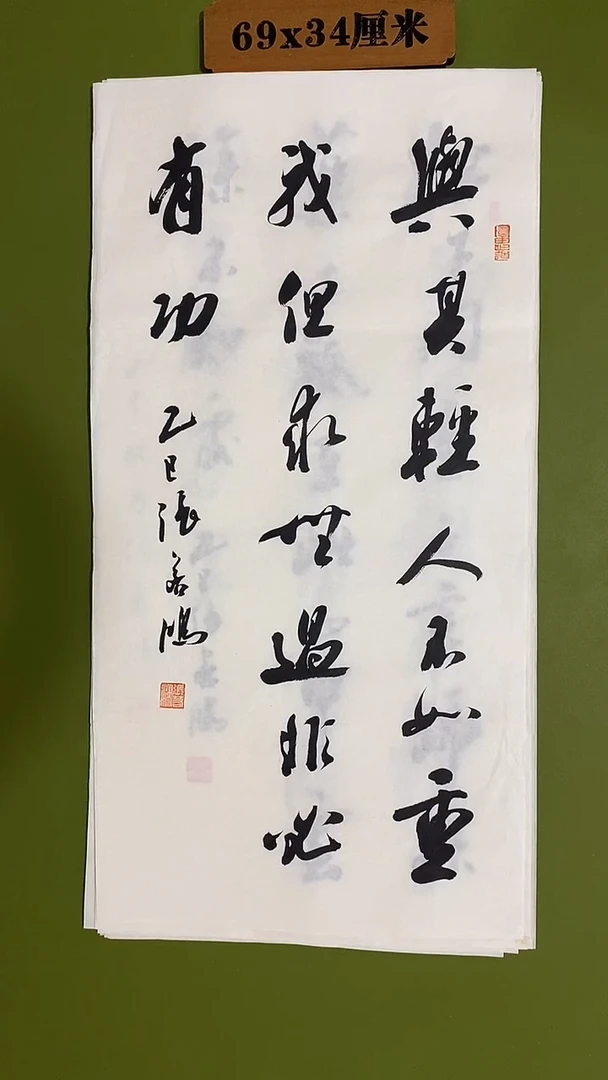 69x34厘米
與其輕人不如重
我但求無過非必
有功
乙巳張若鴻